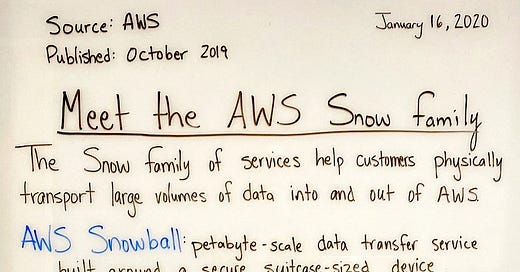 Source: AWS
January 16, 2020
Published: October 2019
Meet the AWS Snow family
The Snow family of services help customers physically
transport large volumes of data into and out of AWS.
AWS Snowball: petabyte-scale data transfer service
built around a secure suitcase-sized device